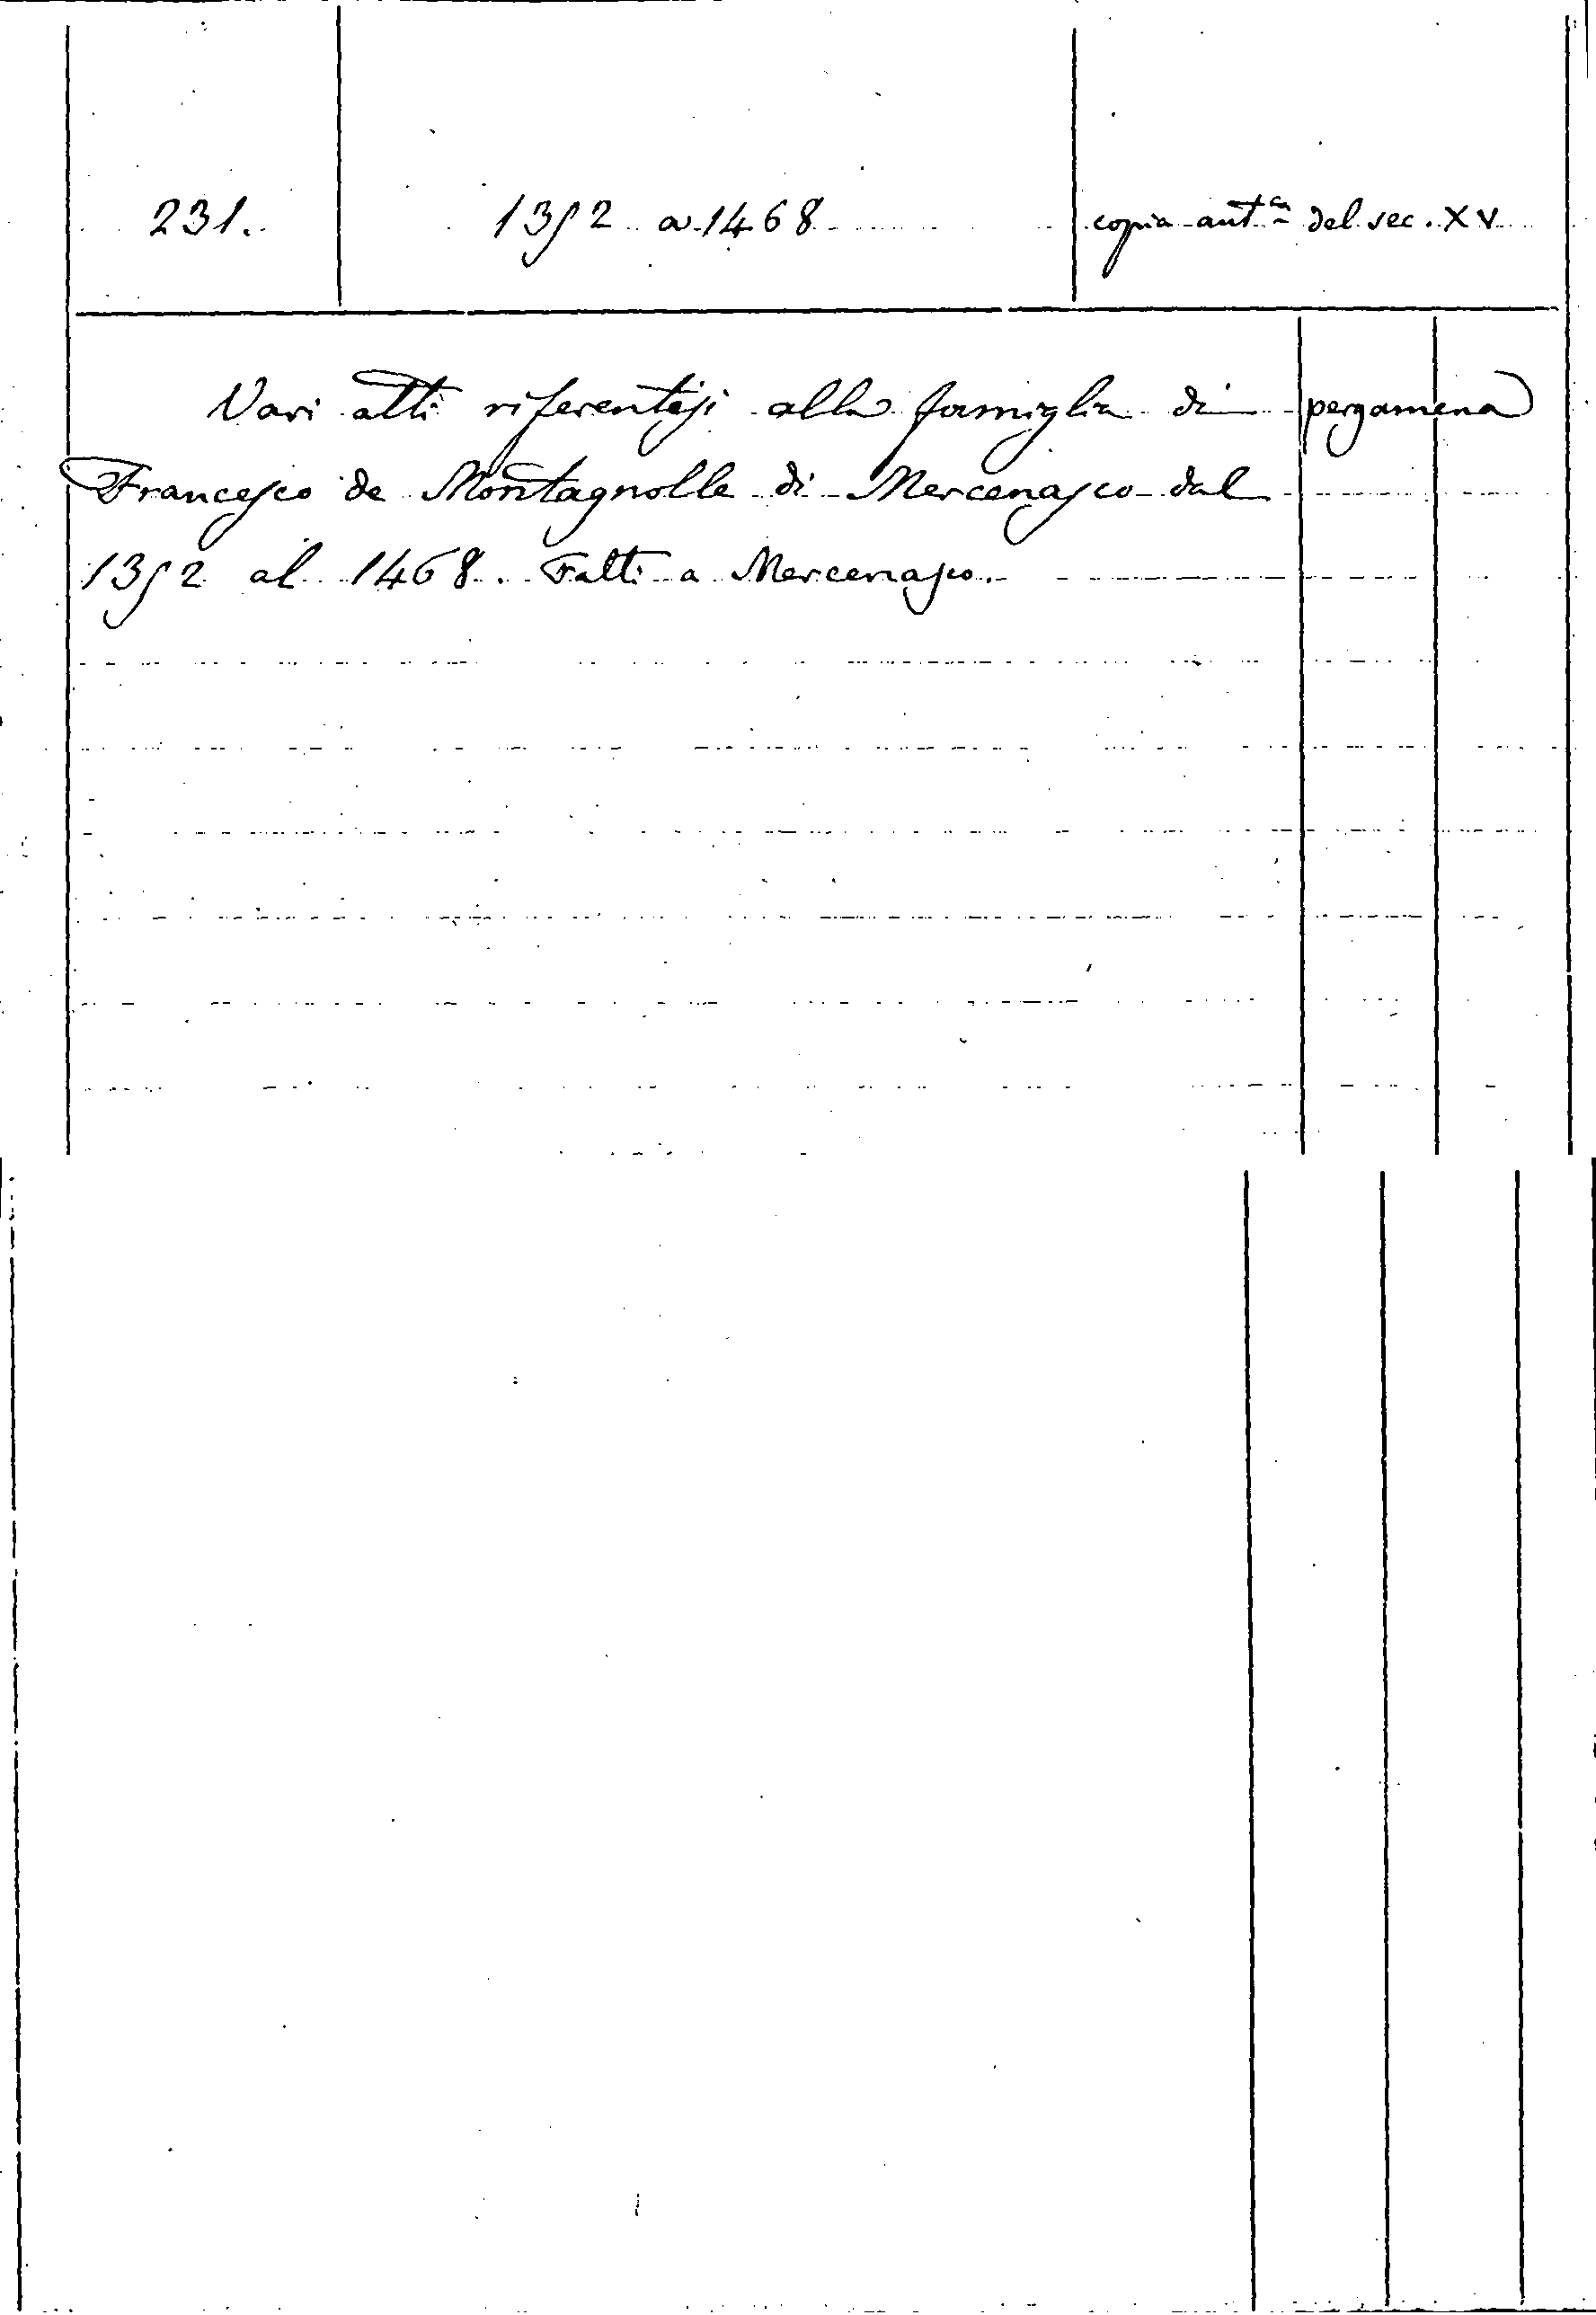 231. 1352 a 1468 copia aut.ca del sec. XV
Vari atti riferentisi alla famiglia di pergamena
Francesco de Montagnolle di Mercenasco dal
1352 al 1468. Fatti a Mercenasco.